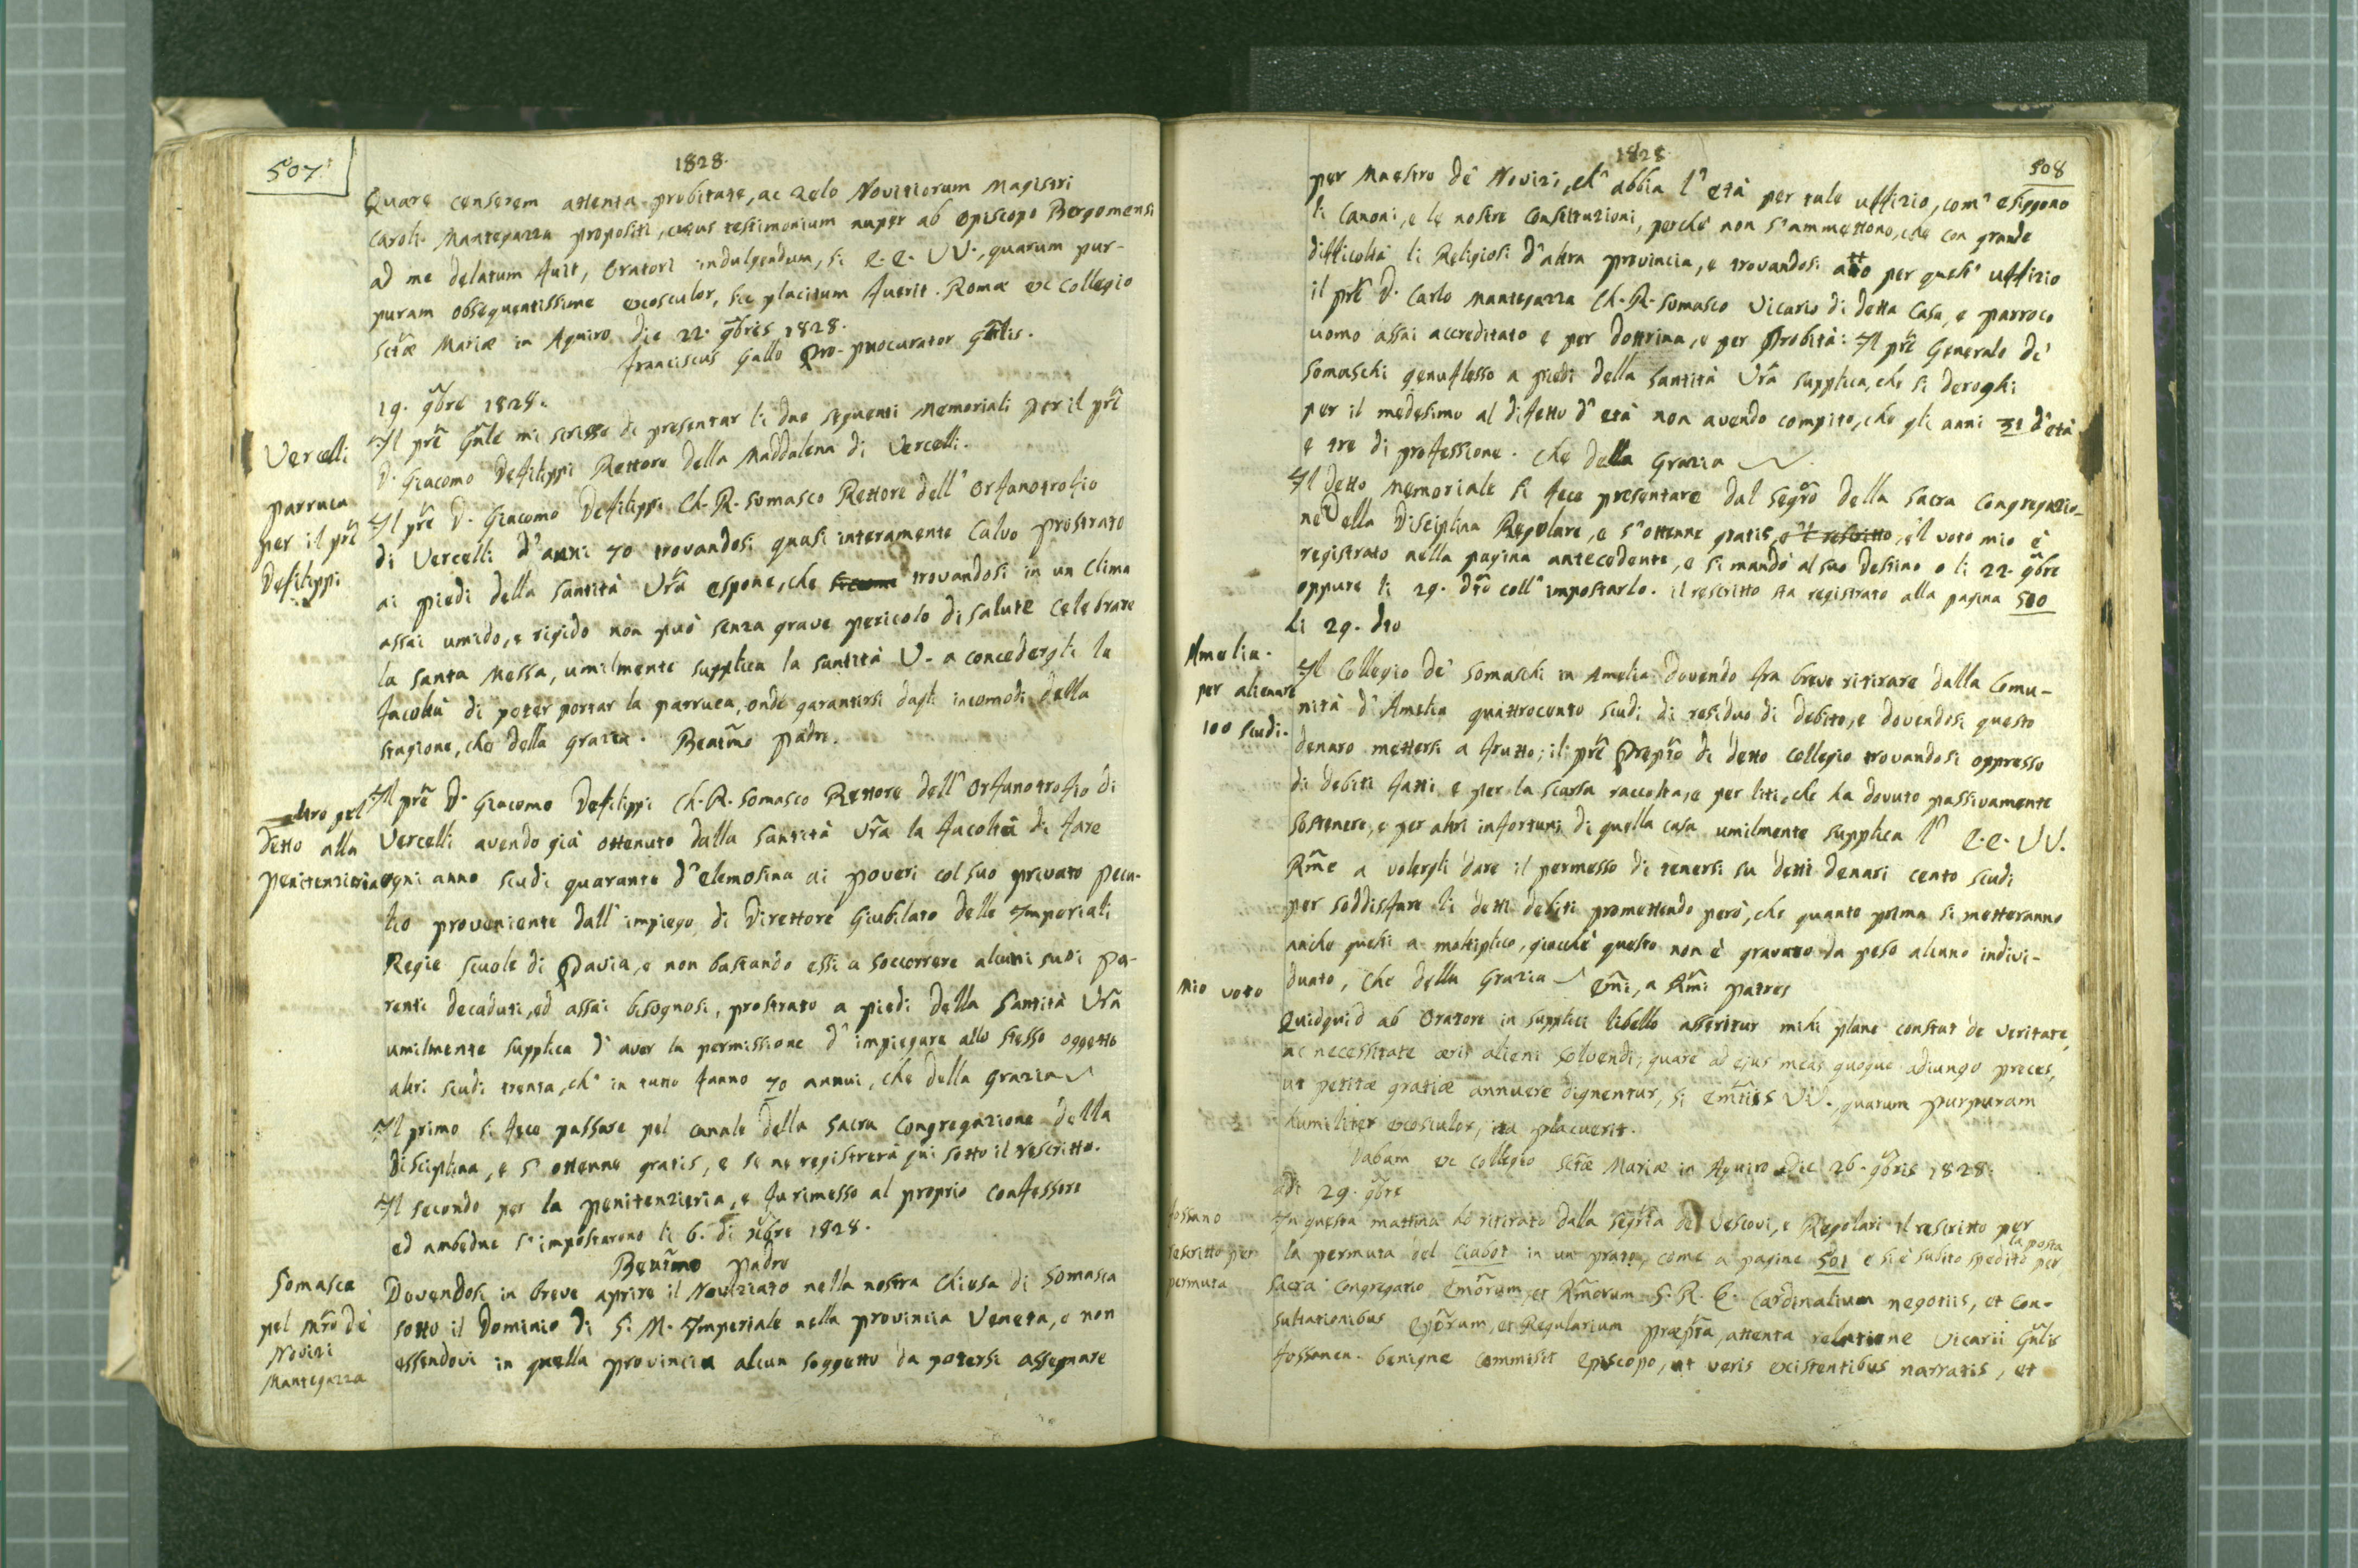 507.
1828.
Quare censerem attenta probitate, ac zelo Novitiorum Magistri
Caroli Mantegazza propositi, cujus testimonium nuper ab Episcopo Bergomensi
ad me delatum fuit, Oratori indulgendum, si E. E. VV., quarum pur-
puram obsequentissime exosculor, sic placitum fuerit. Romæ ex Collegio
Sctæ Mariæ in Aquiro die 22. 9bris 1828.
Franciscus Gallo Pro-Procurator Gñlis.
19. 9bre 1828.
Vercelli
Il prẽ Gñle mi scrisse di presentar li due seguenti Memoriali per il prẽ
D. Giacomo Defilippi Rettore della Maddalena di Vercelli.
parruca
per il prẽ
Defilippi
Il prẽ D. Giacomo Defilippi Ch. R. Somasco Rettore dell' Orfanotrofio
di Vercelli d'anni 70 trovandosi quasi interamente calvo prostrato
ai piedi della Santità Vrã espone, che siccome trovandosi in un clima
assai umido, e rigido non può senza grave pericolo di salute celebrare
la Santa Messa, umilmente supplica la Santità V. a concedergli la
facoltà di poter portar la parruca, onde garantirsi dagli incomodi della
stagione, che della grazia. Beatm̃o Padre.
altro pel
detto alla
penitenzieria
Il prẽ D. Giacomo Defilippi Ch. R. Somasco Rettore dell' Orfanotrofio di
Vercelli avendo già ottenuto dalla Santità Vrã la facoltà di fare
ogni anno scudi quaranta d'elemosina ai poveri col suo privato pecu-
lio proveniente dall' impiego di Direttore Giubilato delle Imperiali
Regie Scuole di Pavia, e non bastando essi a soccorrere alcuni suoi pa-
renti decaduti, ed assai bisognosi, prostrato a piedi della Santità Vrã
umilmente supplica d'aver la permissione d'impiegare allo stesso oggetto
altri scudi trenta, ch' in tutto fanno 70 annui, che della grazia
Il primo si fece passare pel canale della Sacra Congregazione della
Disciplina, e s'ottenne gratis, e se ne registrerà qui sotto il rescritto.
Il secondo per la penitenzieria, e fu rimesso al proprio confessore
ed ambedue s'impostarono li 6. di xbre 1828.
Beatim̃o Padre
Somasca
pel Mrõ de'
Novizi
Mantegazza
Dovendosi in breve aprire il Noviziato nella nostra Chiesa di Somasca
sotto il Dominio di S. M. Imperiale nella provincia Veneta, e non
essendovi in quella provincia alcun soggetto da potersi assegnare
1828
508
per Maestro de' Novizi, ch' abbia l'età per tale uffizio, com' esiggono
li Canoni, e le nostre Constituzioni, perchè non s'ammettono, che con grande
difficoltà li Religiosi d'altra provincia, e trovandosi atto per quest' uffizio
il prẽ D. Carlo Mantegazza Ch. R. Somasco Vicario di detta Casa, e parroco
uomo assai accreditato e per dottrina, e per probità: Il prẽ Generale de'
Somaschi genuflesso a piedi della Santità Vrã supplica, che si deroghi
per il medesimo al difetto d'età non avendo compito, che gli anni 31 d'età
e tre di professione. Che della Grazia
Il detto Memoriale si fece presentare dal Segrõ della Sacra Congregazio-
ne della Disciplina Regolare, e s'ottenne gratis, e 'l rescritto, e 'l voto mio è
registrato nella pagina antecedente, e si mandò al suo destino o li 22. 9bre
oppure li 29. dtõ coll' impostarlo. il rescritto sta registrato alla pagina 510
Li 29. dto
Amelia.
per alienare
100 scudi.
Il Collegio de' Somaschi in Amelia dovendo fra breve ritirare dalla Comu-
nità d'Amelia quattrocento scudi di residuo di debito, e dovendosi questo
denaro mettersi a frutto; il prẽ Prepto di detto Collegio trovandosi oppresso
di debiti fatti e per la scarsa raccolta, e per liti, che ha dovuto passivamente
sostenere, e per altri infortuni di quella casa umilmente supplica l' E. E. VV.
Rm̃e a volergli dare il permesso di tenersi su detti denari cento scudi
per soddisfare li detti debiti promettendo però, che quanto prima si metteranno
anche questi a moltiplico, giacchè questo non è gravato da peso alcuno indivi-
duato, che della Grazia Em̃i, a Rm̃i Patres
mio voto
Quidquid ab Oratore in supplici libello asseritur mihi plane constat de veritate,
ac necessitate æris alieni solvendi; quare ad ejus meas quoque adiungo preces,
ut petitæ gratiæ annuere dignentur, si Em̃tiis VV., quarum purpuram
humiliter exosculor, ita placuerit.
Dabam ex Collegio Sctæ Mariæ in Aquiro Die 26. 9bris 1828.
adi 29. 9bre
Fossano
rescritto per
permuta
In questa mattina ho ritirato dalla Segrĩa de' Vescovi, e Regolari il rescritto per
la permuta del Ciabot in un prato, come a pagine 501 e si è subito spedito per
la posta
Sacra Congregatio Emorum, et Rmorum S. R. E. Cardinalium negotiis, et con-
sultationibus Eporum, et Regularium præpta, attenta relatione Vicarii Gñlis
Fossanen. benigne commisit Episcopo, ut veris existentibus narratis, et